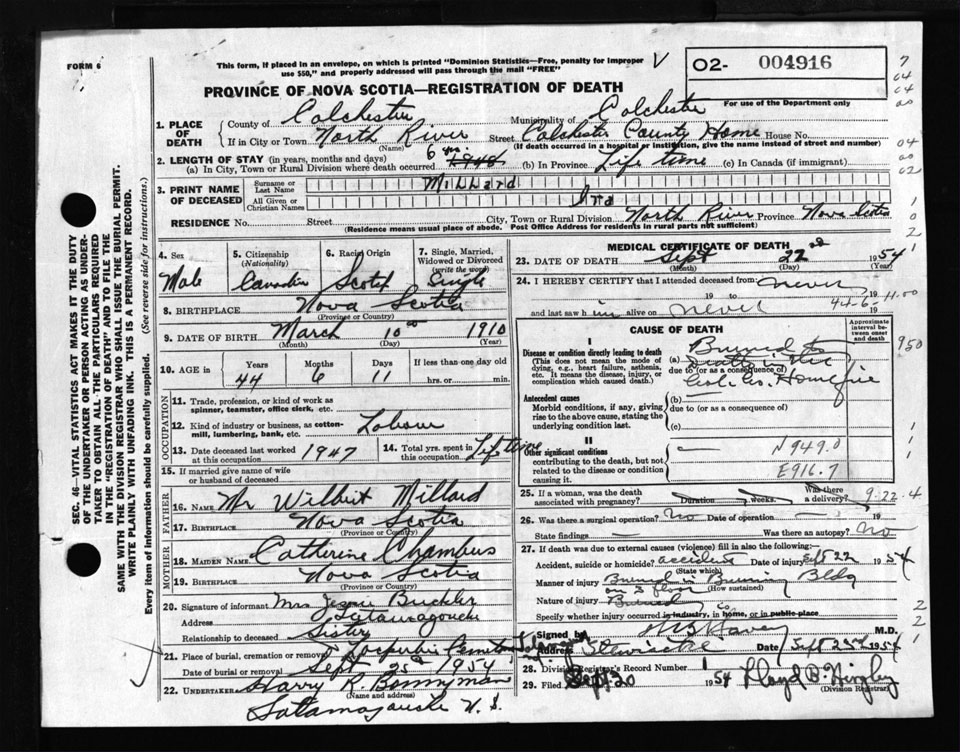 FORM 6
This form, if placed in an envelope, on which is printed "Dominion Statistics—Free, penalty for improper
use $50," and properly addressed will pass through the mail "FREE"
V
O2- 004916
For use of the Department only
PROVINCE OF NOVA SCOTIA—REGISTRATION OF DEATH
1. PLACE OF DEATH
County of Colchester Municipality of Colchester
If in City or Town North River Street Colchester County Home House No.
(Name) (If death occurred in a hospital or institution, give the name instead of street and number)
2. LENGTH OF STAY (in years, months and days)
(a) In City, Town or Rural Division where death occurred 6 (b) In Province Life time (c) In Canada (if immigrant)
3. PRINT NAME OF DECEASED
Surname or Last Name Millard
All Given or Christian Names Ira
RESIDENCE No. Street City, Town or Rural Division North River Province Nova Scotia
(Residence means usual place of abode. Post Office Address for residents in rural parts not sufficient)
4. Sex
Male
5. Citizenship (Nationality)
Canadian
6. Racial Origin
Scotch
7. Single, Married, Widowed or Divorced (write the word)
Single
8. BIRTHPLACE Nova Scotia
(Province or Country)
9. DATE OF BIRTH March 10 1910
(Month) (Day) (Year)
10. AGE in Years Months Days If less than one day old
44 6 11 hrs. or min.
OCCUPATION
11. Trade, profession, or kind of work as spinner, teamster, office clerk, etc.
12. Kind of industry or business, as cotton-mill, lumbering, bank, etc. Labour
13. Date deceased last worked at this occupation 1947
14. Total yrs. spent in this occupation Life time
15. If married give name of wife or husband of deceased
FATHER
16. Name Mr Wilbert Millard
17. Birthplace Nova Scotia
(Province or Country)
MOTHER
18. MAIDEN NAME Catherine Chambers
19. BIRTHPLACE Nova Scotia
(Province or Country)
20. Signature of informant Mrs Jessie Buckler
Address Tatamagouche
Relationship to deceased Sister
21. Place of burial, cremation or removal Cemetery
Date of burial or removal Sept 25th 1954
22. UNDERTAKER Harry R. Bonnyman
(Name and address)
Tatamagouche N. S.
MEDICAL CERTIFICATE OF DEATH
23. DATE OF DEATH Sept 22nd 1954
(Month) (Day) (Year)
24. I HEREBY CERTIFY that I attended deceased from never 19
19 to 19
44-6-11.00
and last saw h im alive on never 19
CAUSE OF DEATH
Approximate interval between onset and death
I
Disease or condition directly leading to death
(This does not mean the mode of dying, e.g., heart failure, asthenia, etc. It means the disease, injury, or complication which caused death.)
(a) Burned to
death in the
due to (or as a consequence of)
Col. Co. Home fire
Antecedent causes
Morbid conditions, if any, giving rise to the above cause, stating the underlying condition last.
(b)
due to (or as a consequence of)
(c)
II
Other significant conditions
contributing to the death, but not related to the disease or condition causing it.
N949.0
E916.7
950
25. If a woman, was the death associated with pregnancy? Duration weeks. Was there a delivery?
9-22-4
26. Was there a surgical operation? No Date of operation 19
State findings Was there an autopsy? No
27. If death was due to external causes (violence) fill in also the following:
Accident, suicide or homicide? accident Date of injury Sept 22 1954
(State which)
Manner of injury Burned in Burning Bldg
on 3 floor (How sustained)
Nature of injury Burned
Specify whether injury occurred in industry, in home, or in public place
Signed by M.D.
Address Stewiacke Date Sept 23rd 1954
28. Division Registrar's Record Number 1
29. Filed Sept 20 1954 Lloyd B.
(Division Registrar)
SEC. 46—VITAL STATISTICS ACT MAKES IT THE DUTY
OF THE UNDERTAKER OR PERSON ACTING AS UNDER-
TAKER TO OBTAIN ALL THE PARTICULARS REQUIRED
IN THE "REGISTRATION OF DEATH" AND TO FILE THE
SAME WITH THE DIVISION REGISTRAR WHO SHALL ISSUE THE BURIAL PERMIT.
WRITE PLAINLY WITH UNFADING INK. THIS IS A PERMANENT RECORD.
Every item of information should be carefully supplied. (See reverse side for instructions.)